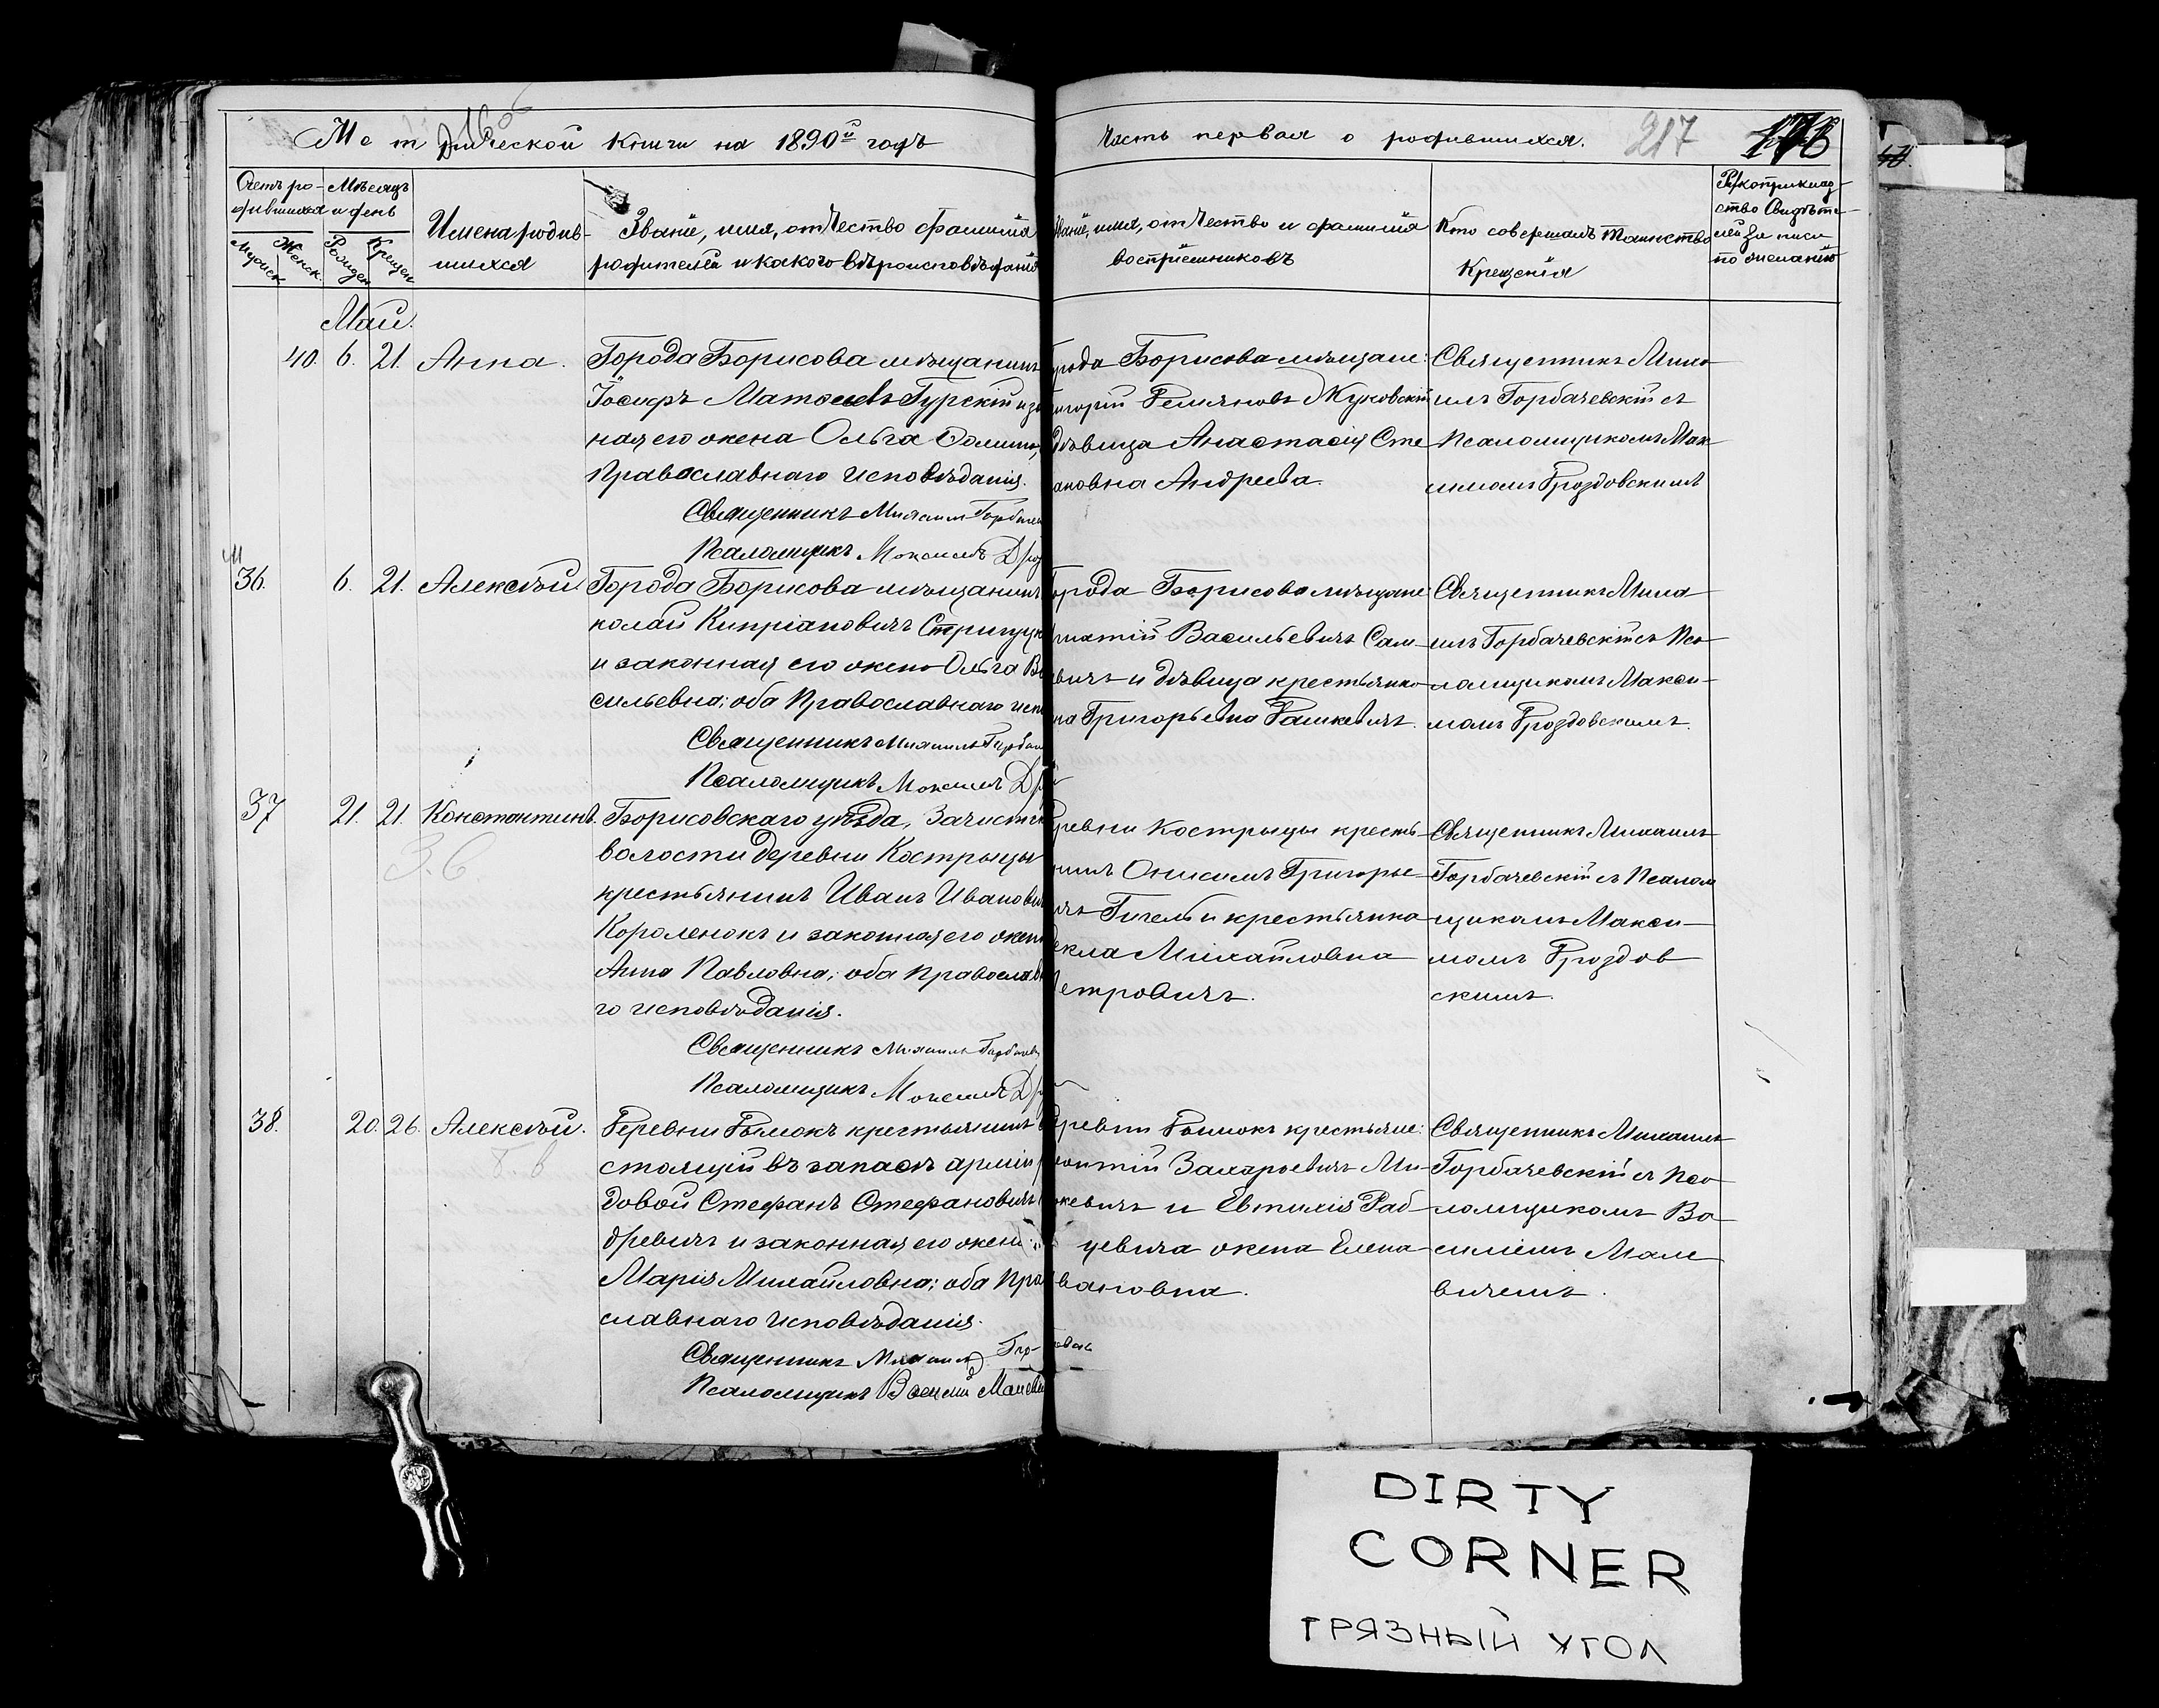 Метрической книги на 1890й годъ
Часть первая о родившихся. 217
Счетъ ро-
дившихся
Мужск
Женск.
Мѣсяцъ
и день
Рожден
Крещен
Имена родив-
шихся
Званіе, имя, отчество фамилія
родителей и какого вѣроисповѣданія
Званіе, имя, отчество и фамилія
воспріемниковъ
Кто совершалъ таинство
Крещенія
Рукоприклад-
ство свидѣте-
лей записи
по желанію
Май.
40. 6. 21. Анна.
Города Борисова мѣщанинъ
Іосифъ Матѳеевъ Гурскій и
ная его жена Ольга
Православнаго исповѣданія.
Священникъ Михаилъ
Псаломщикъ Максимъ
Города Борисова мѣщане:
Григорій Демьяновъ Жуковскій
дѣвица Анастасія Сте
ановна Андреева.
Священникъ Миха
илъ Горбачевскій съ
Псаломщикомъ Мак
симомъ Дроздовскимъ
41
36. 6. 21. Алексѣй.
Города Борисова мѣщанинъ
колай Кипріановичъ
и законная его жена Ольга Ва
сильевна; оба Православнаго исп
Священникъ Михаилъ
Псаломщикъ Максимъ
Города Борисова мѣщане
Игнатій Васильевичъ Сам-
вичъ и дѣвица крестьянка
на Григорьевна Рашкевичъ.
Священникъ Миха
илъ Горбачевскій съ Пса
ломщикомъ Макси-
момъ Дроздовскимъ.
37 21. 21. Константинъ.
З. в.
Борисовскаго уѣзда, Зачист
волости деревни Кострицы
крестьянинъ Иванъ Иванови
Короленокъ и законная его жена
Анна Павловна; оба православ
го исповѣданія.
Священникъ Михаилъ Горбачев
Псаломщикъ Максимъ
Деревни Кострицы кресть-
нинъ Онисимъ Григорье-
ичъ Гигель и крестьянка
екла Михайловна
Петровичъ.
Священникъ Михаилъ
Горбачевскій съ Псалом
щикомъ Макси-
момъ Дроздов
скимъ.
38. 20. 26. Алексѣй.
Деревни Дымокъ крестьянинъ
стоящій въ запасѣ арміи
довой Стефанъ Стефановичъ
древичъ и законная его жена
Марія Михайловна; оба Пра
славнаго исповѣданія.
Священникъ Михаилъ
Псаломщикъ Василій
Деревни Дымокъ крестьяне:
Захарьевичъ Ми-
кевичъ и Евтихія Раб-
цевича жена Елена
вановна.
Священникъ Михаилъ
Горбачевскій съ Пса
ломщикомъ Ва
силіемъ Мале
вичемъ.
DIRTY
CORNER
ГРЯЗНЫЙ УГОЛ